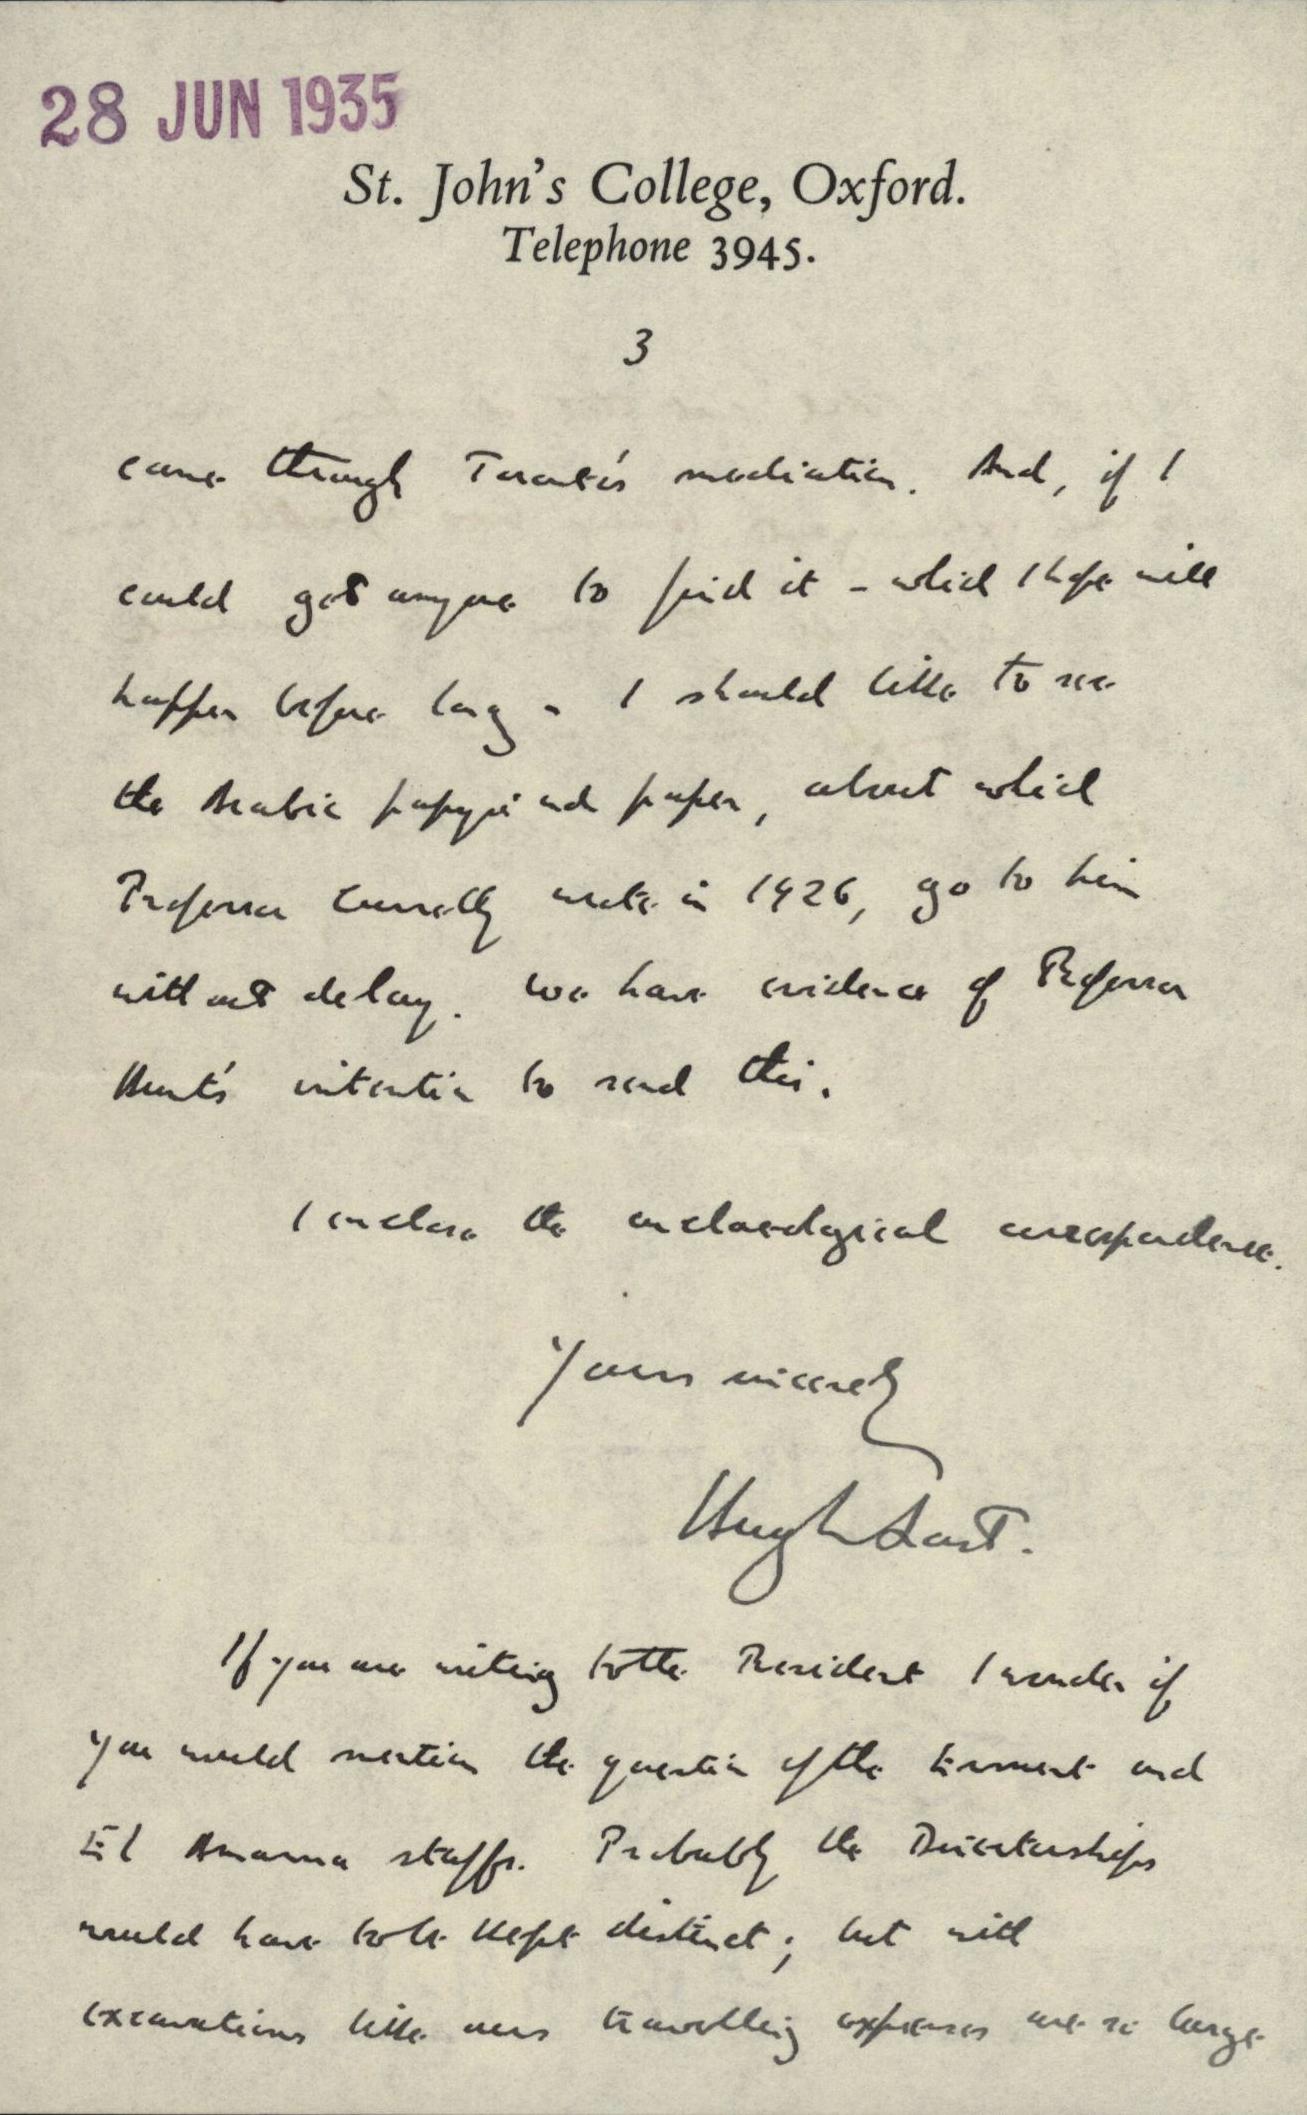 28 JUN 1935
St. John's College, Oxford.
Telephone 3945.
3
came through Toronto's mediation. And, if I
could get anyone to find it – which I hope will
happen before long – I should like to see
the Arabic papyri and paper, about which
Professor Currelly wrote in 1926, go to him
without delay. We have evidence of Professor
Hunt's intention to send this.
I enclose the archaeological correspondence.
Yours sincerely
Hugh Last.
If you are writing to the President I wonder if
you would mention the question of the Armant and
El Amarna staffs. Probably the Directorships
would have to be kept distinct; but with
excavations like ours travelling expenses are so large